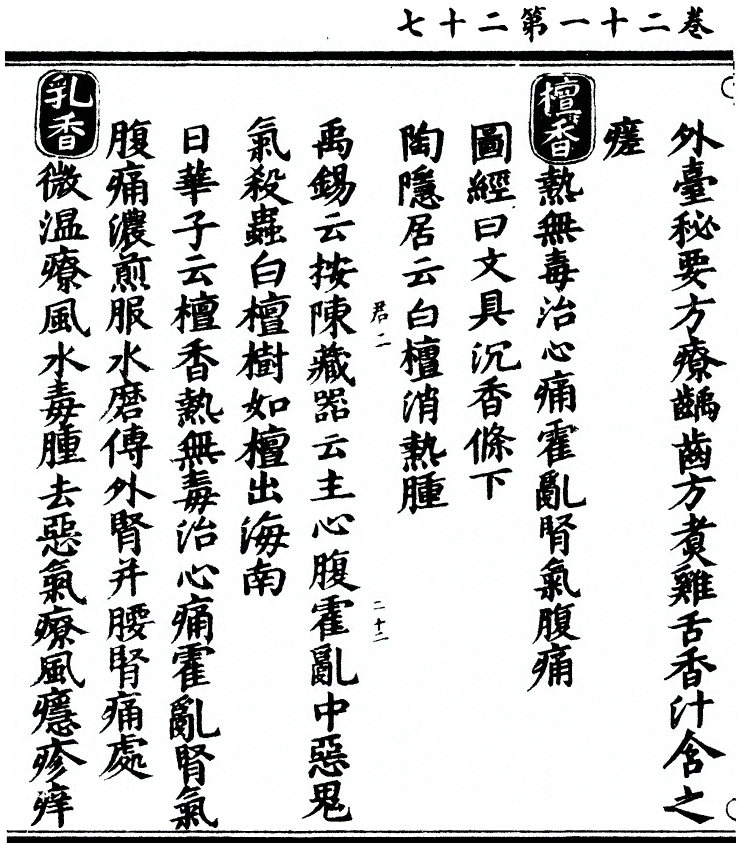 卷二十一第二十七
外臺秘要方療齲齒方煮雞舌香汁含之
瘥
檀香熱無毒治心痛霍亂腎氣腹痛
圖經曰文具沉香條下
陶隱居云白檀消熱腫
君二
二十二
禹錫云按陳藏器云主心腹霍亂中惡鬼
氣殺蟲白檀樹如檀出海南
日華子云檀香熱無毒治心痛霍亂腎氣
腹痛濃煎服水磨傅外腎并腰腎痛處
乳香微溫療風水毒腫去惡氣療風癮疹痒